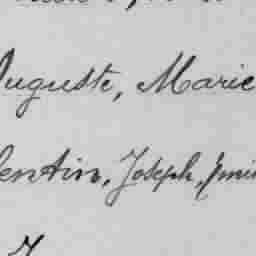 Auguste, Marie
lentin, Joseph, Emi